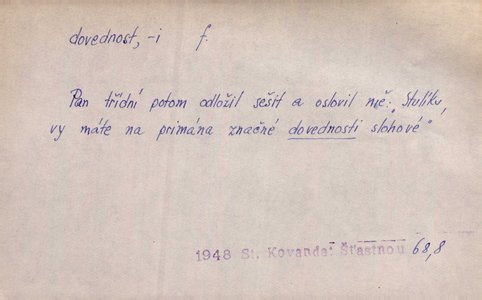 dovednost, -i f.
Pan třídní potom odložil sešit a oslovil mě: „Stulíku,
vy máte na primána značné dovednosti slohové"
1948 St. Kovanda: Šťastnou 68,8